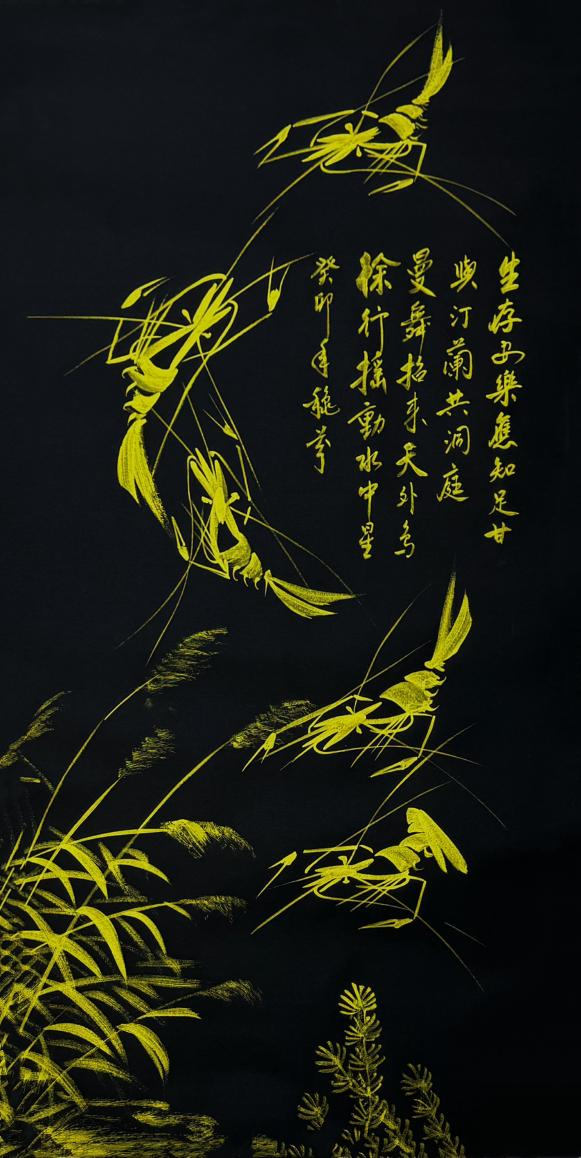 生存安樂應知足甘
與汀蘭共洞庭
曼舞招来天外鳥
徐行摇動水中星
癸卯年